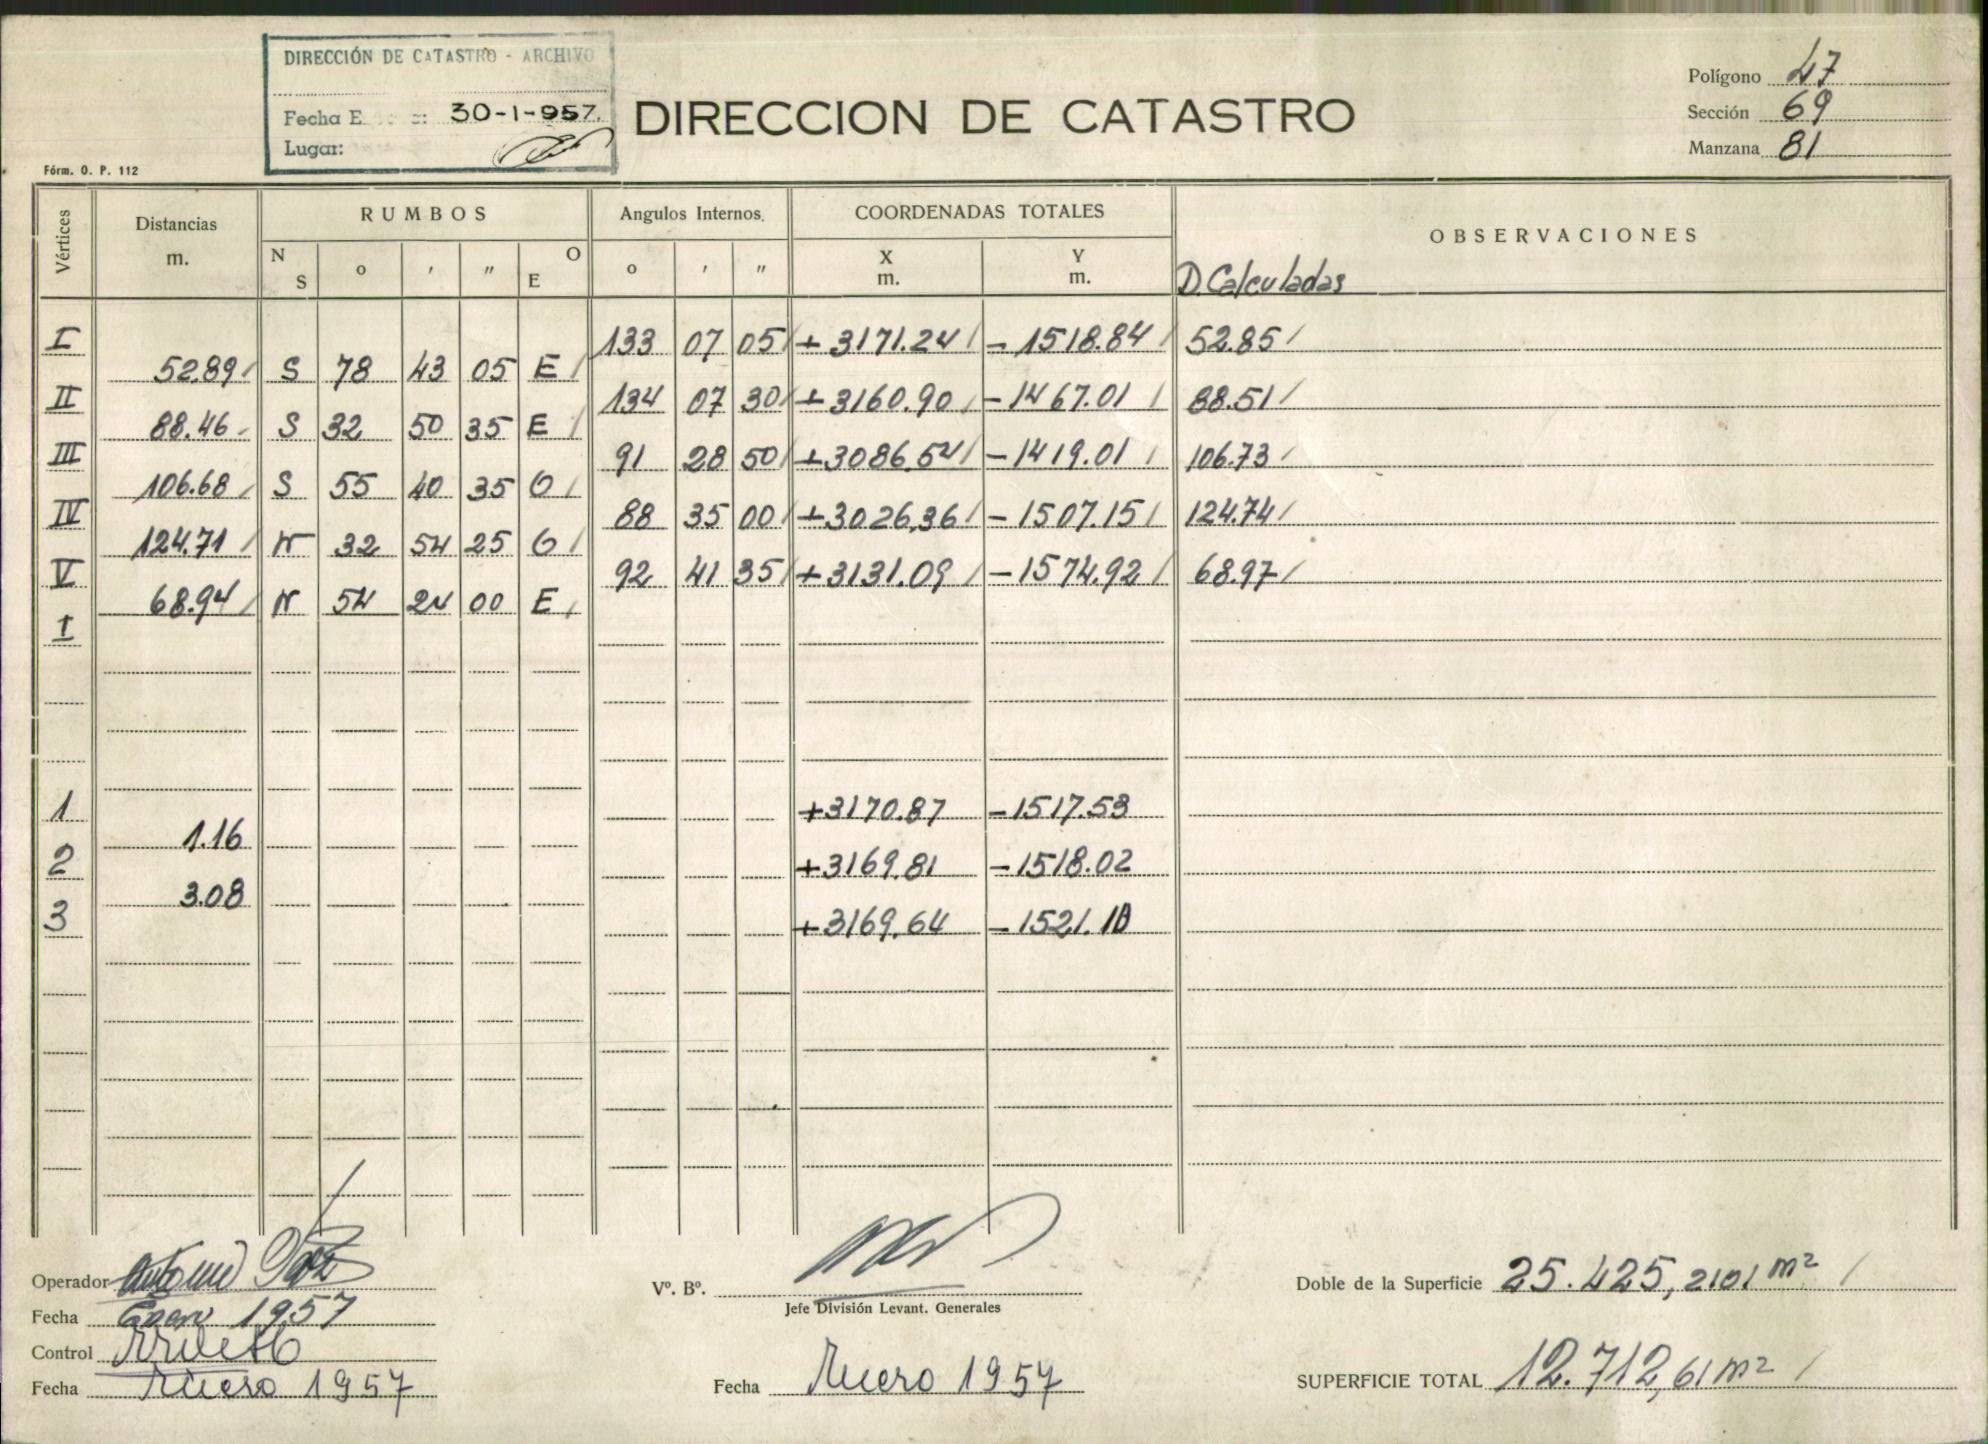 DIRECCIÓN DE CATASTRO - ARCHIVO
Fecha E 30-1-957.
Lugar:
DIRECCION DE CATASTRO
Polígono 47
Sección 69
Manzana 81
Fórm. O. P. 112
Vértices Distancias m. RUMBOS Angulos Internos. COORDENADAS TOTALES OBSERVACIONES
N S o ' " O E o ' " X m. Y m. D. Calculadas
I 133 07 05 + 3171.24 - 1518.84 52.85
52.89 S 78 43 05 E
II 134 07 30 + 3160.90 - 1467.01 88.51
88.46 S 32 50 35 E
III 91 28 50 + 3086.54 - 1419.01 106.73
106.68 S 55 40 35 O
IV 88 35 00 + 3026.36 - 1507.15 124.74
124.71 N 32 54 25 O
V 92 41 35 + 3131.09 - 1574.92 68.97
68.94 N 54 24 00 E
I
1 +3170.87 -1517.53
1.16
2 +3169.81 -1518.02
3.08
3 +3169.64 -1521.10
Operador Antonio
Fecha Enero 1957
Control
Fecha Enero 1957
Vº. Bº.
Jefe División Levant. Generales
Fecha Enero 1957
Doble de la Superficie 25.425,2101 m²
SUPERFICIE TOTAL 12.712,61 m²